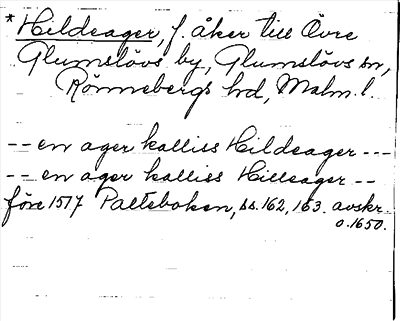 * Hildeager, f. åker till Övre
Glumslövs by, Glumslövs sn,
Rönnebergs hd, Malm. l.
-- en ager kalliss Hildeager ---
-- en ager kalliss Hilleager --
före 1517 Palteboken, ss. 162, 163. avskr.
o. 1650.